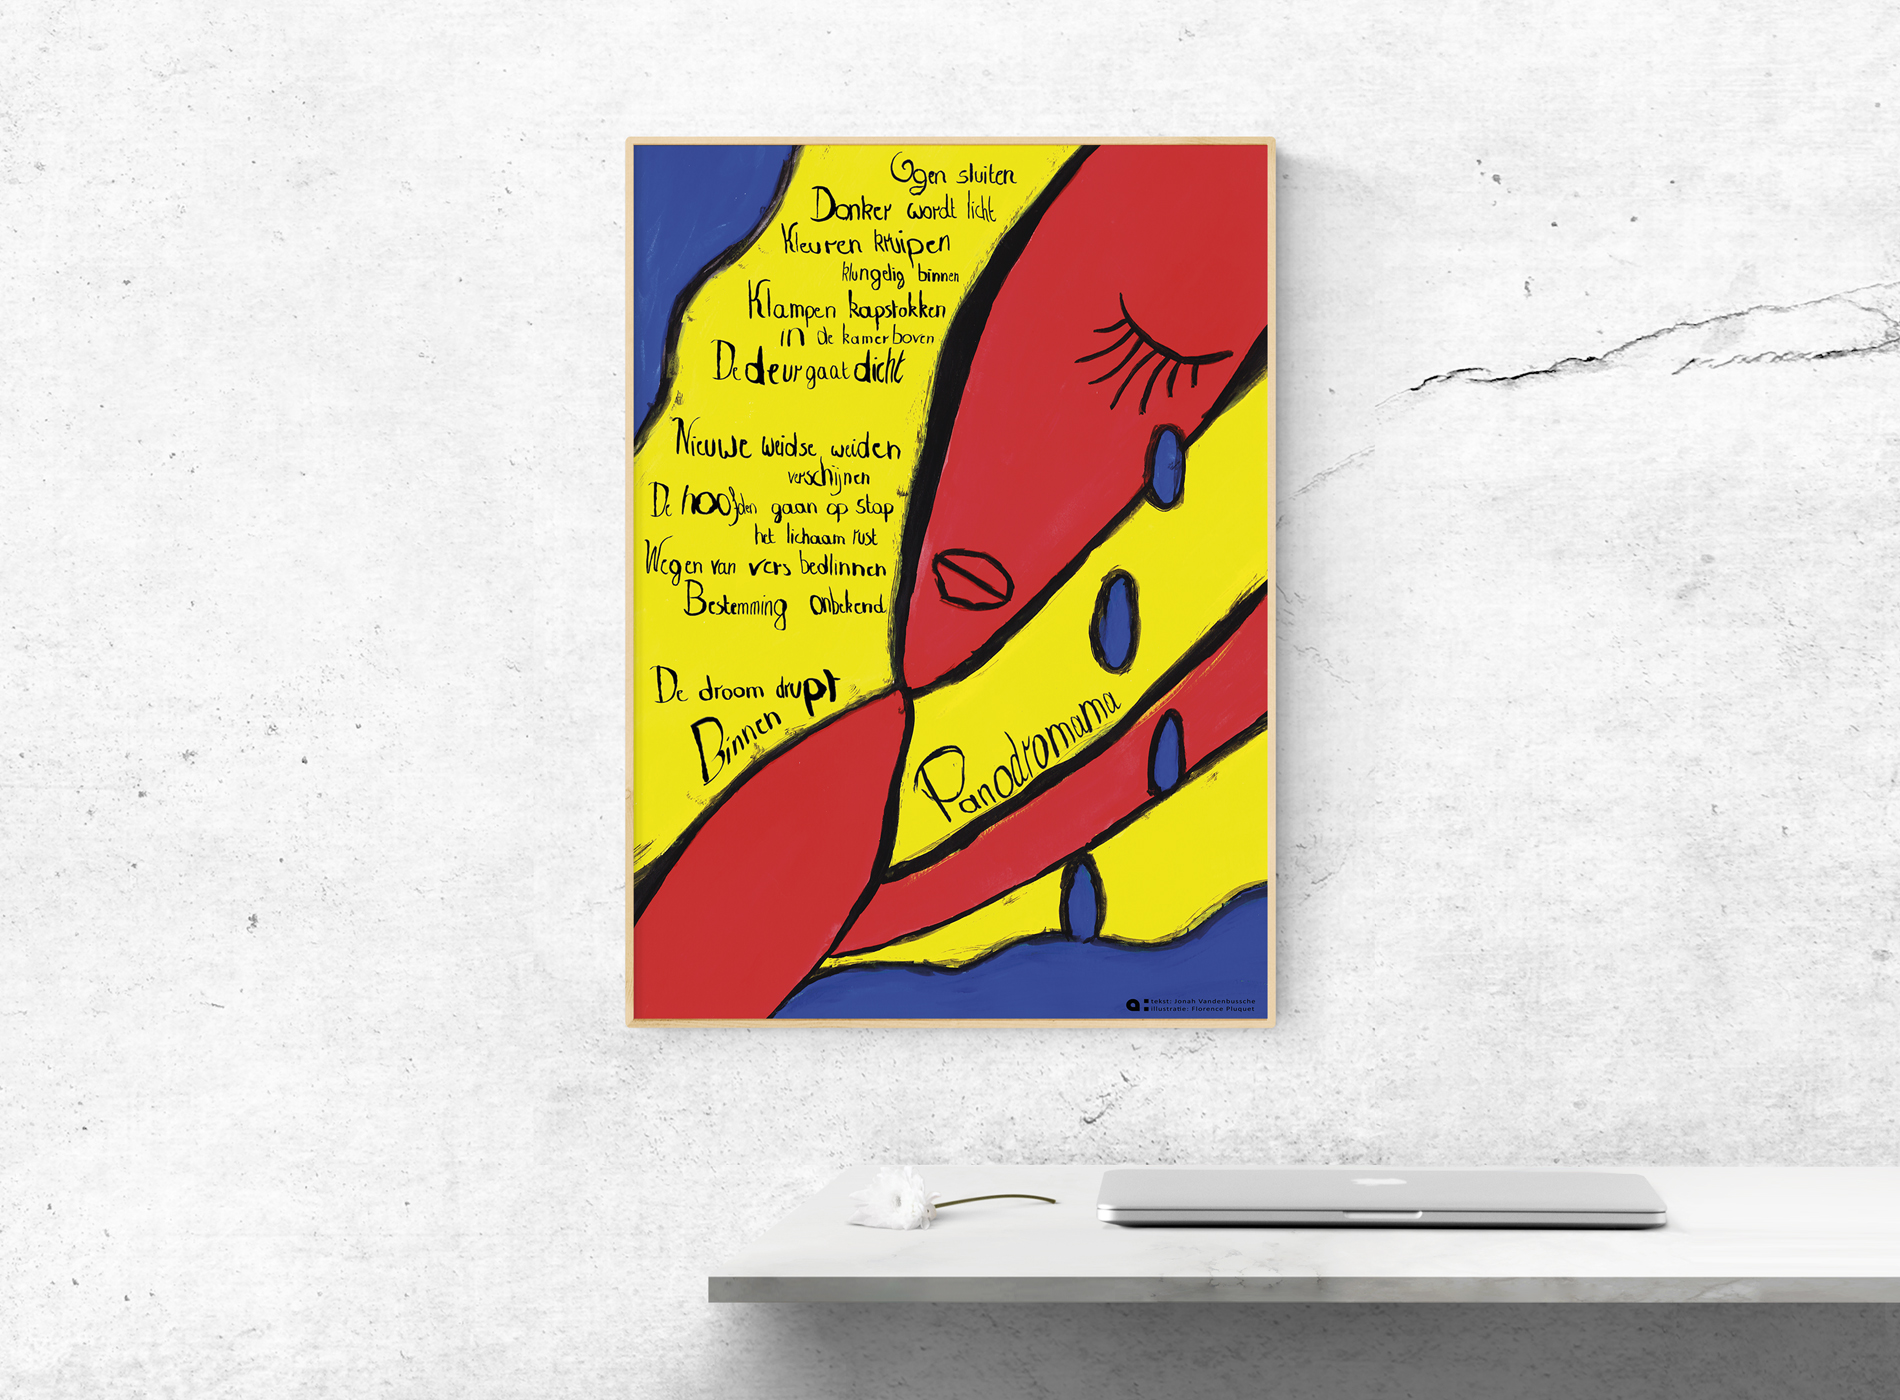 Ogen sluiten
Donker wordt licht
Kleuren kruipen
klungelig binnen
Klampen kapstokken
in de kamer boven
De deur gaat dicht
Nieuwe weidse weiden
verschijnen
De hoofden gaan op stap
het lichaam rust
Wegen van vers bedlinnen
Bestemming onbekend
De droom drupt
Binnen
Panodromama
a: tekst: Jonah Vandenbussche
illustratie: Florence Pluquet